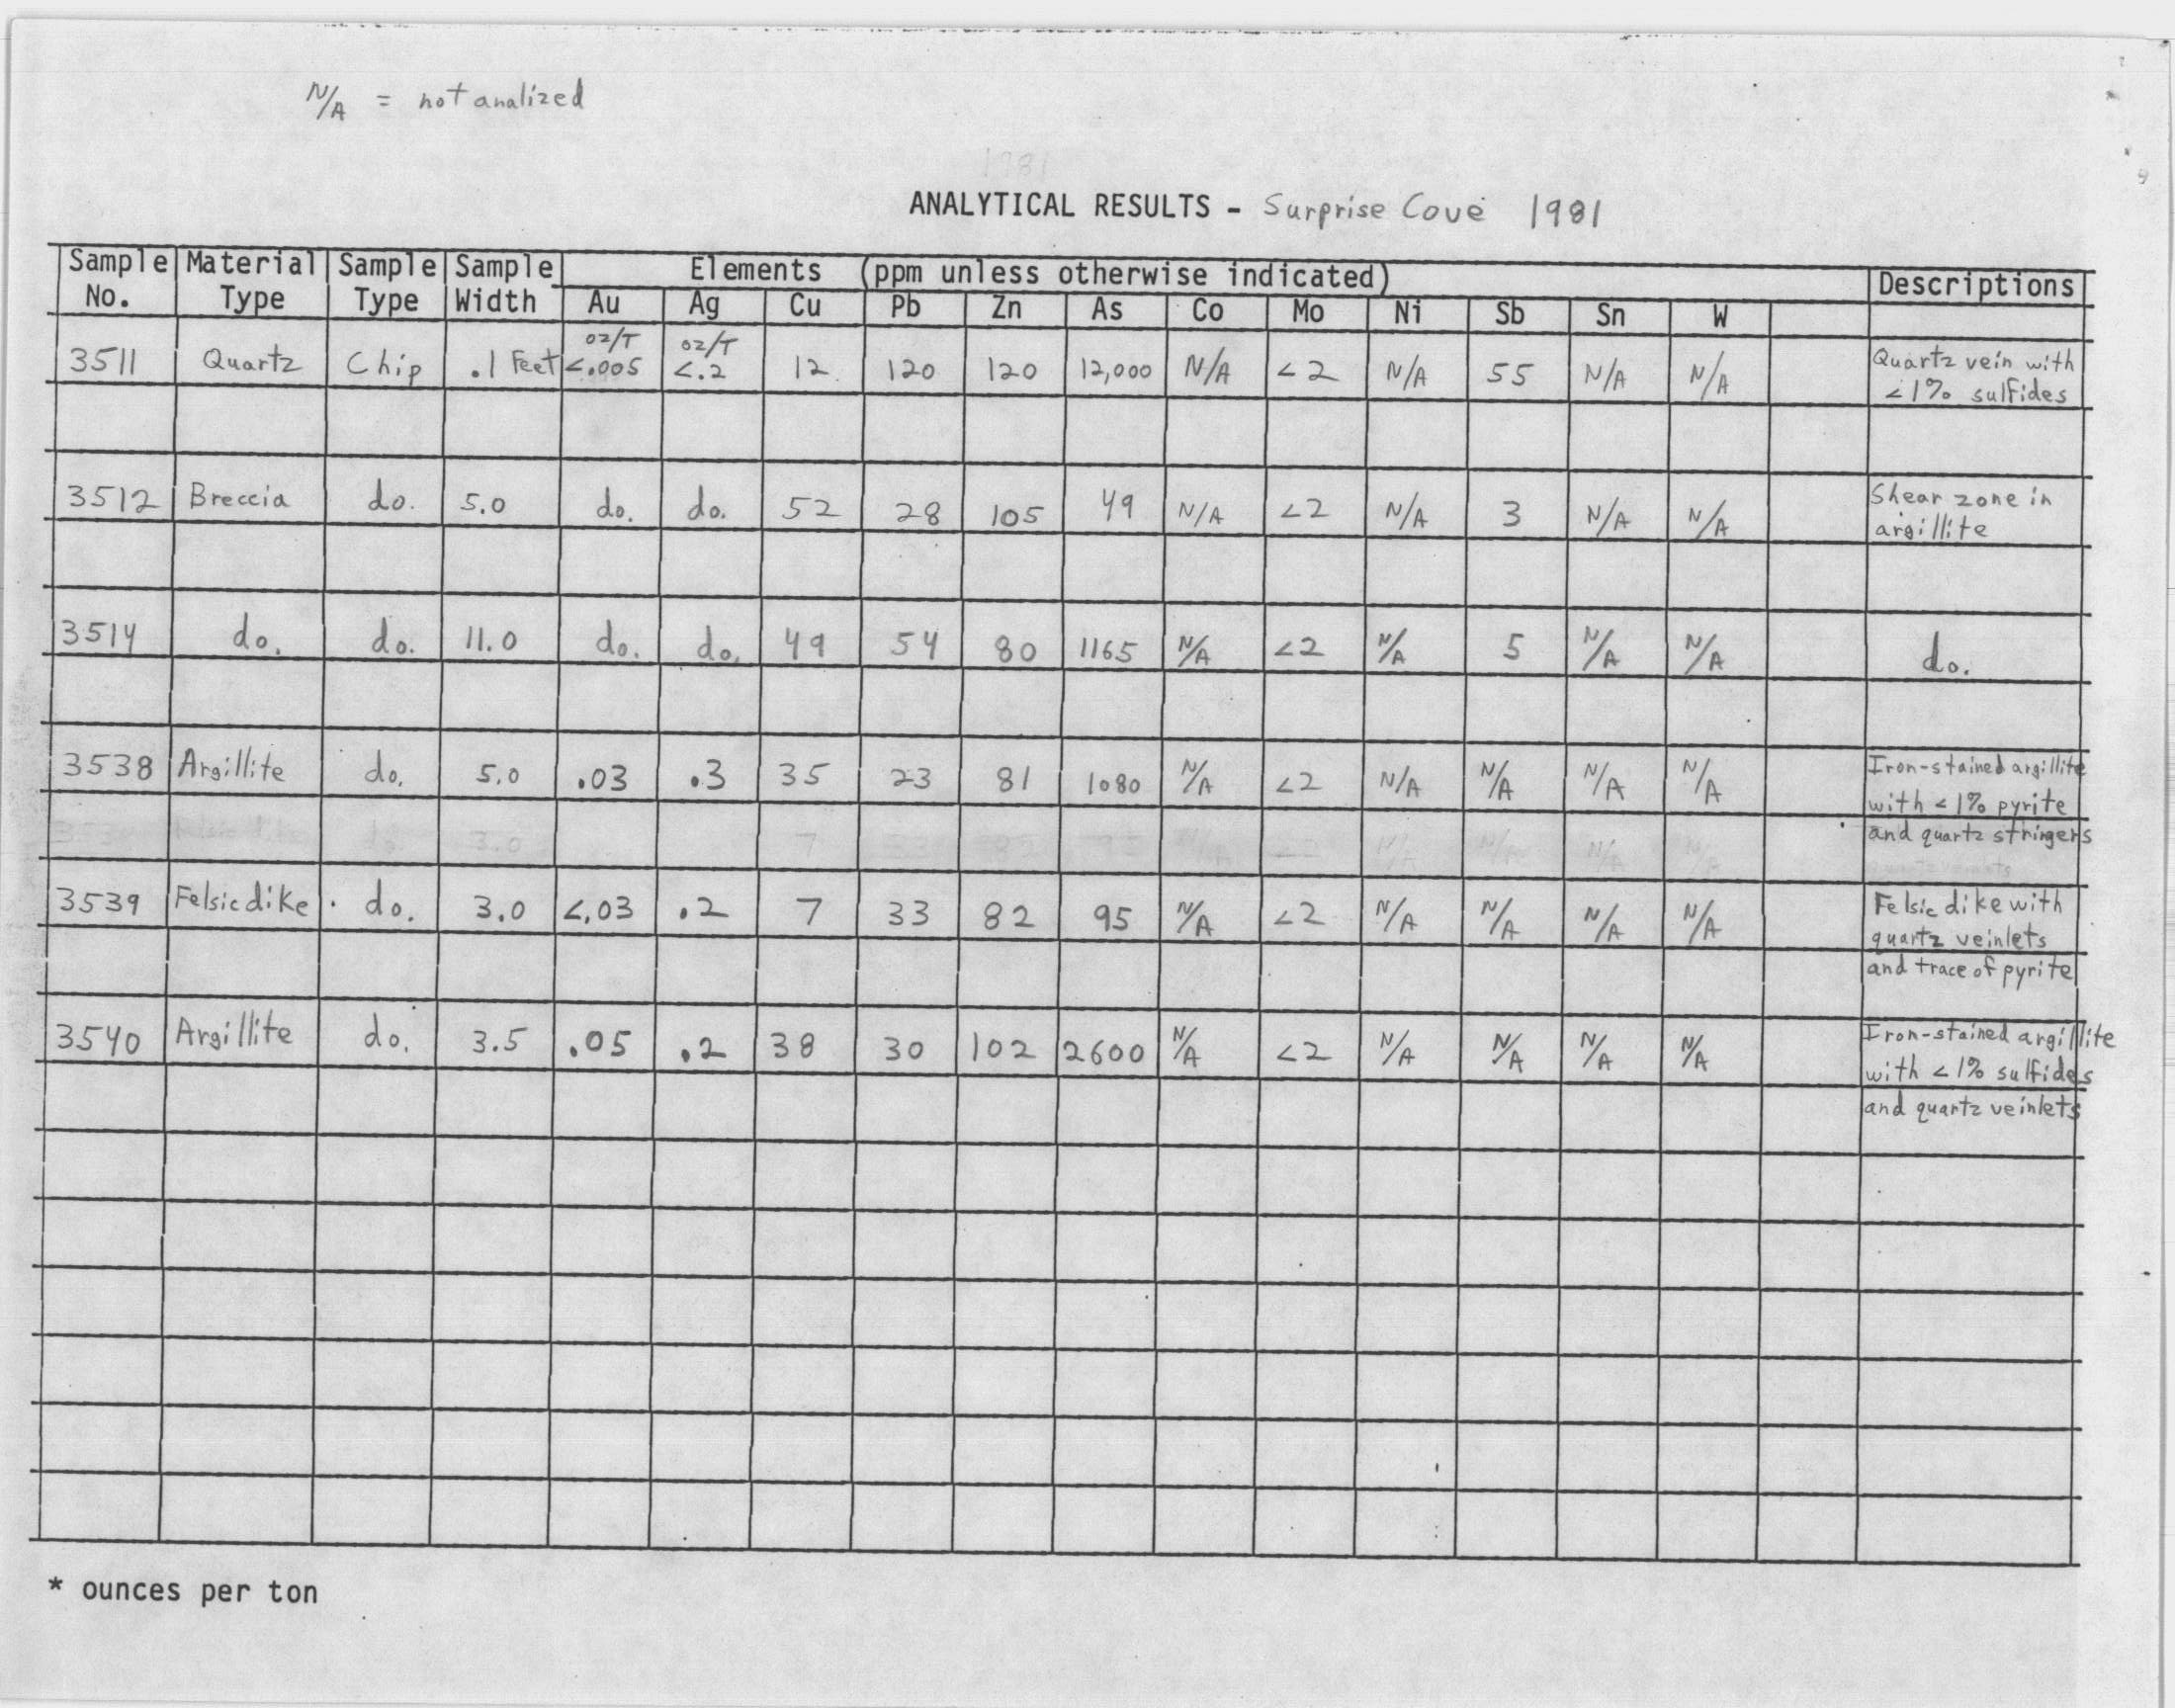 N/A = not analized
ANALYTICAL RESULTS - Surprise Cove 1981
Sample No. Material Type Sample Type Sample Width Elements (ppm unless otherwise indicated) Descriptions
Au Ag Cu Pb Zn As Co Mo Ni Sb Sn W
oz/T oz/T
3511 Quartz Chip .1 Feet <.005 <.2 12 120 120 12,000 N/A <2 N/A 55 N/A N/A Quartz vein with
<1% sulfides
3512 Breccia do. 5.0 do. do. 52 28 105 49 N/A <2 N/A 3 N/A N/A Shear zone in
argillite
3514 do. do. 11.0 do. do. 49 54 80 1165 N/A <2 N/A 5 N/A N/A do.
3538 Argillite do. 5.0 .03 .3 35 23 81 1080 N/A <2 N/A N/A N/A N/A Iron-stained argillite
with <1% pyrite
and quartz stringers
3539 Felsic dike do. 3.0 <.03 .2 7 33 82 95 N/A <2 N/A N/A N/A N/A Felsic dike with
quartz veinlets
and trace of pyrite
3540 Argillite do. 3.5 .05 .2 38 30 102 2600 N/A <2 N/A N/A N/A N/A Iron-stained argillite
with <1% sulfides
and quartz veinlets
* ounces per ton